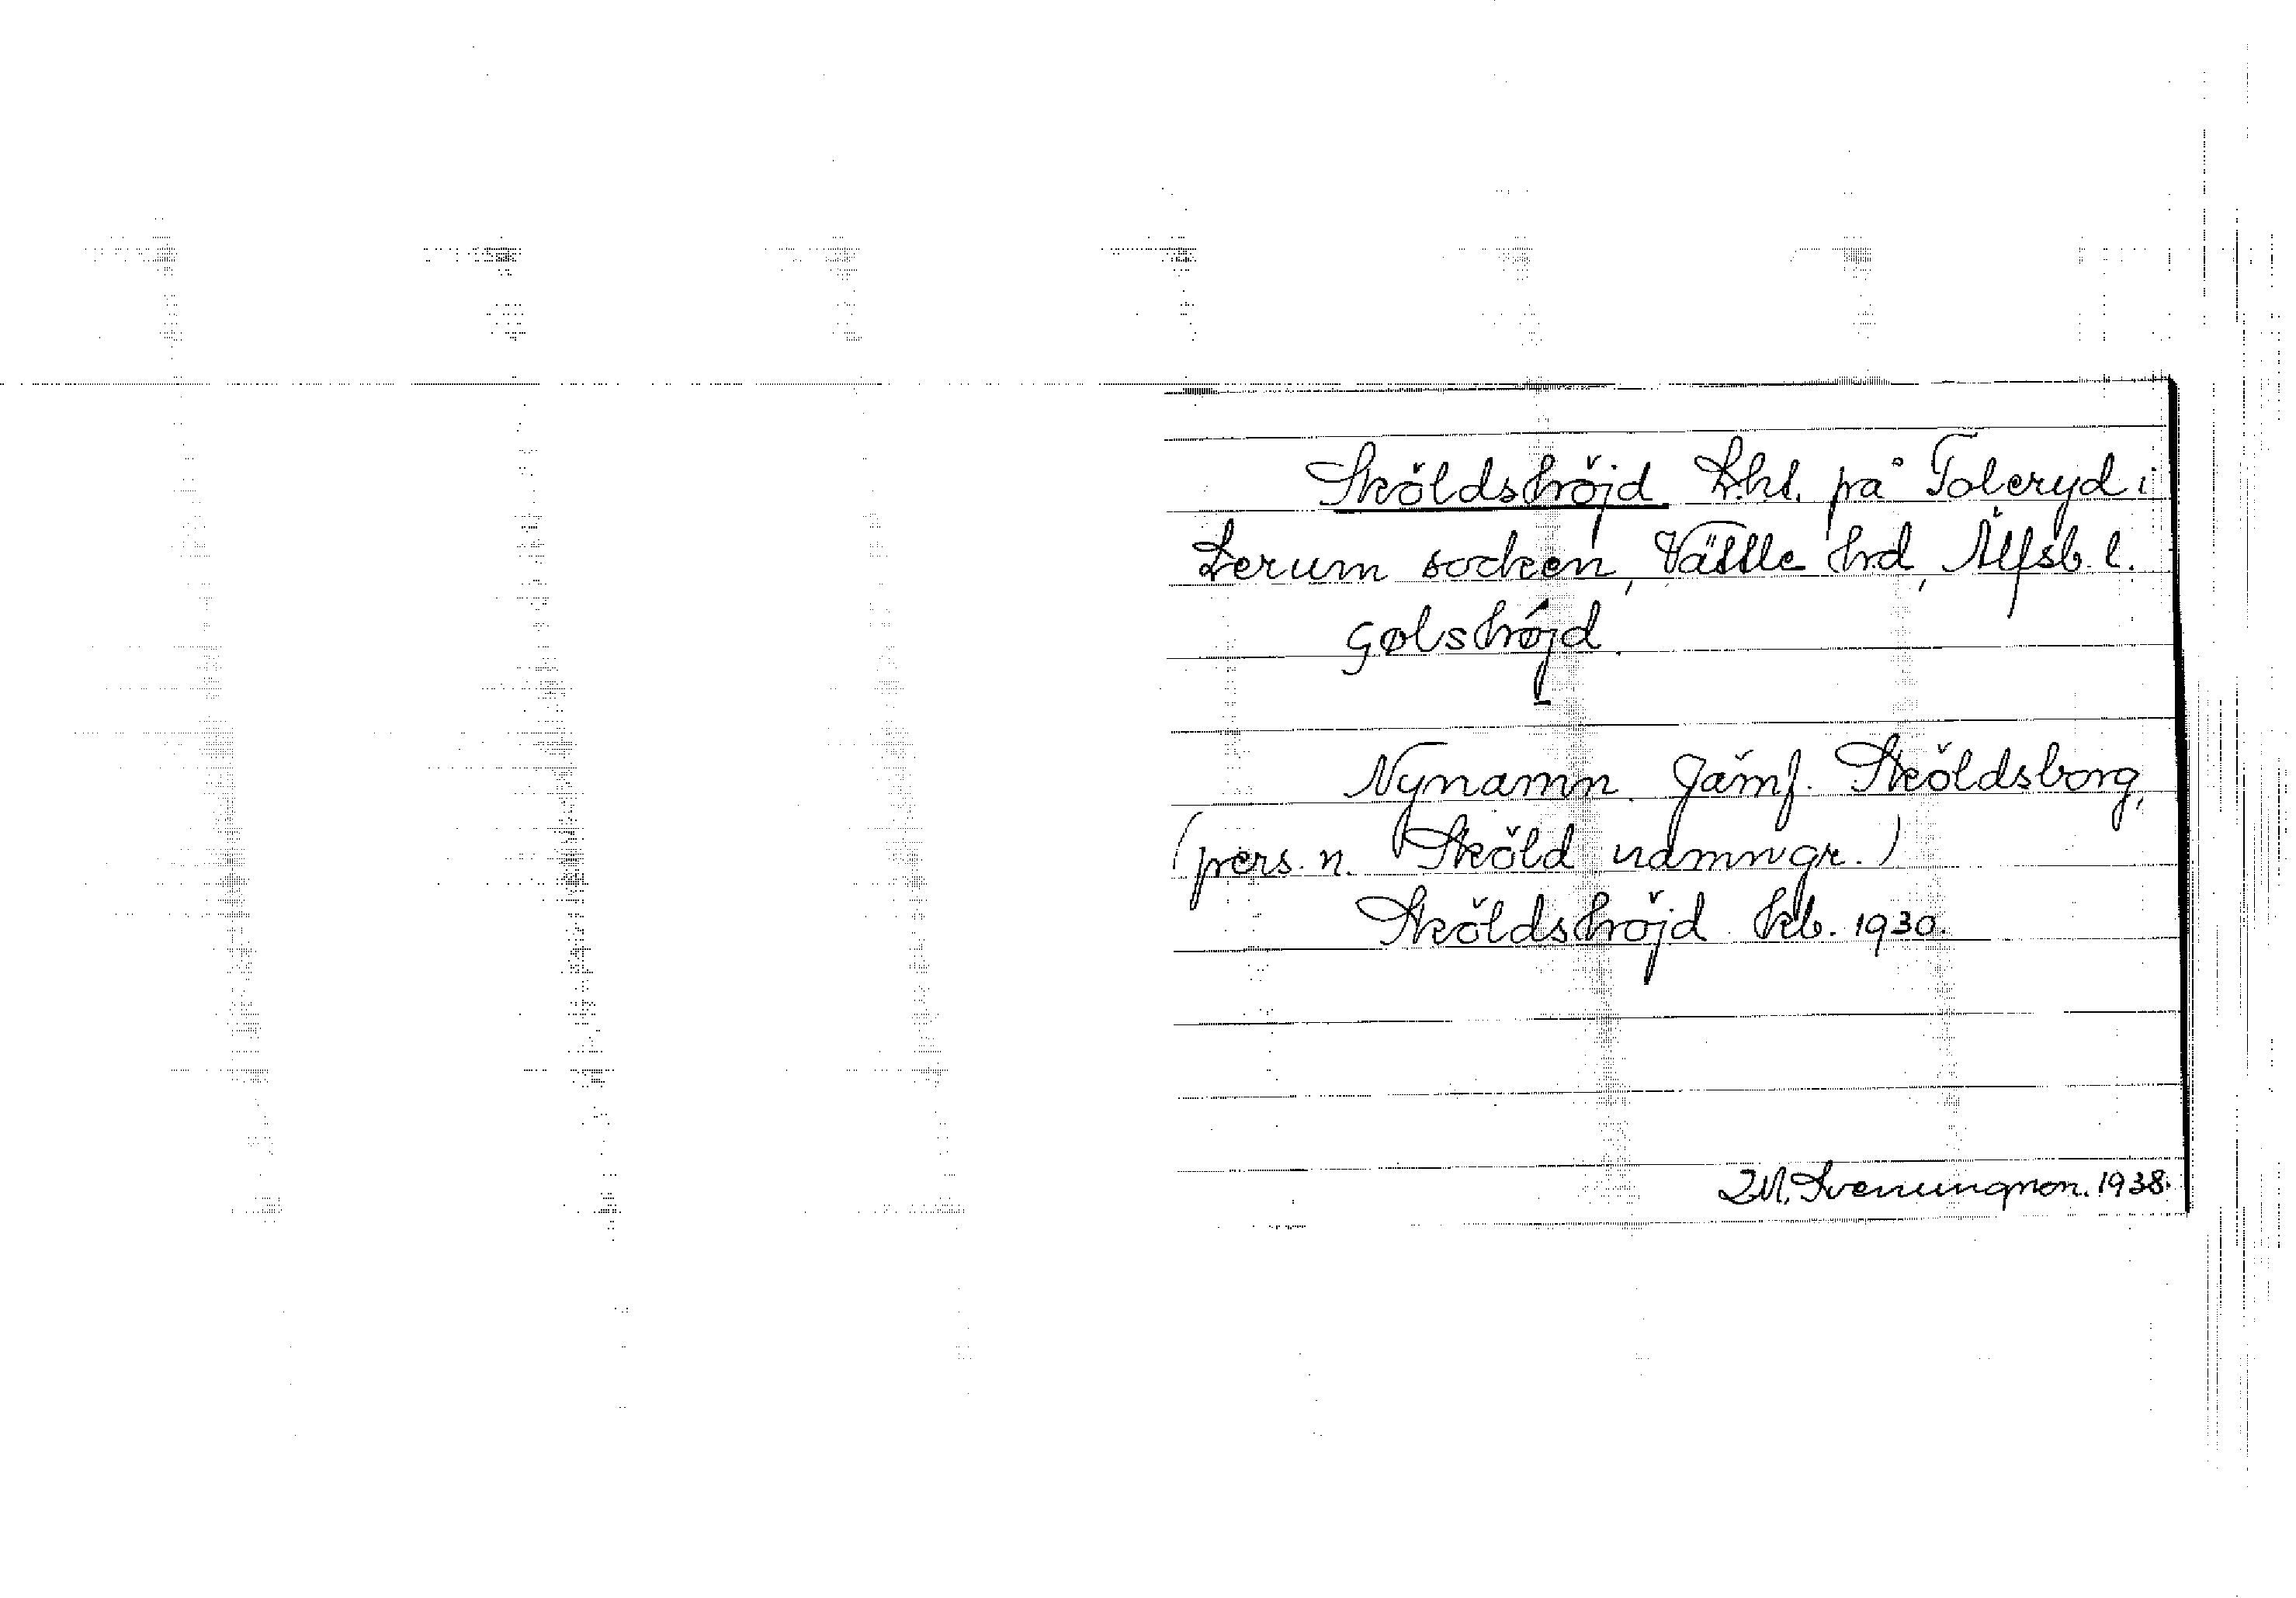 Sköldshöjd. Lht. på Toleryd i
Lerum socken, Vättle hrd, Älfsb. l.
Nynamn. Jämf. Sköldsborg,
(pers. n. Sköld namngr.)
Sköldshöjd kb. 1930.
Svenungsson. 1938.